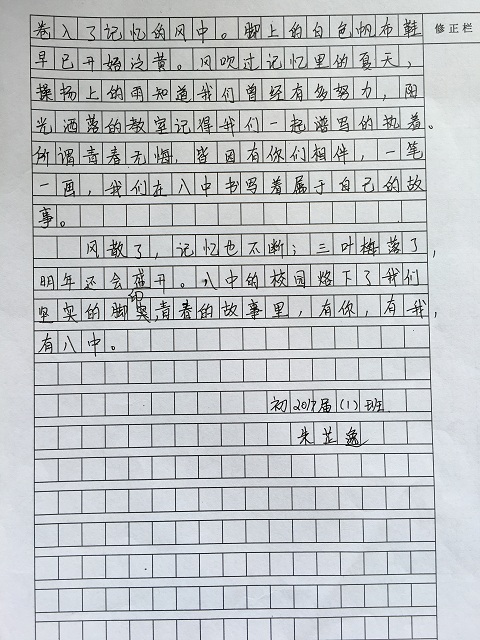 卷入了记忆的风中。脚上的白色帆布鞋
修正栏
早已开始泛黄。风吹过记忆里的夏天，
操场上的雨知道我们曾经有多努力，阳
光洒落的教室记得我们一起谱写的执着。
所谓青春无悔，皆因有你们相伴，一笔
一画，我们在八中书写着属于自己的故
事。
风散了，记忆也不断；三叶梅落了，
明年还会盛开。八中的校园烙下了我们
坚实的脚印，青春的故事里，有你，有我，
有八中。
初2017届(1)班
朱芷逸